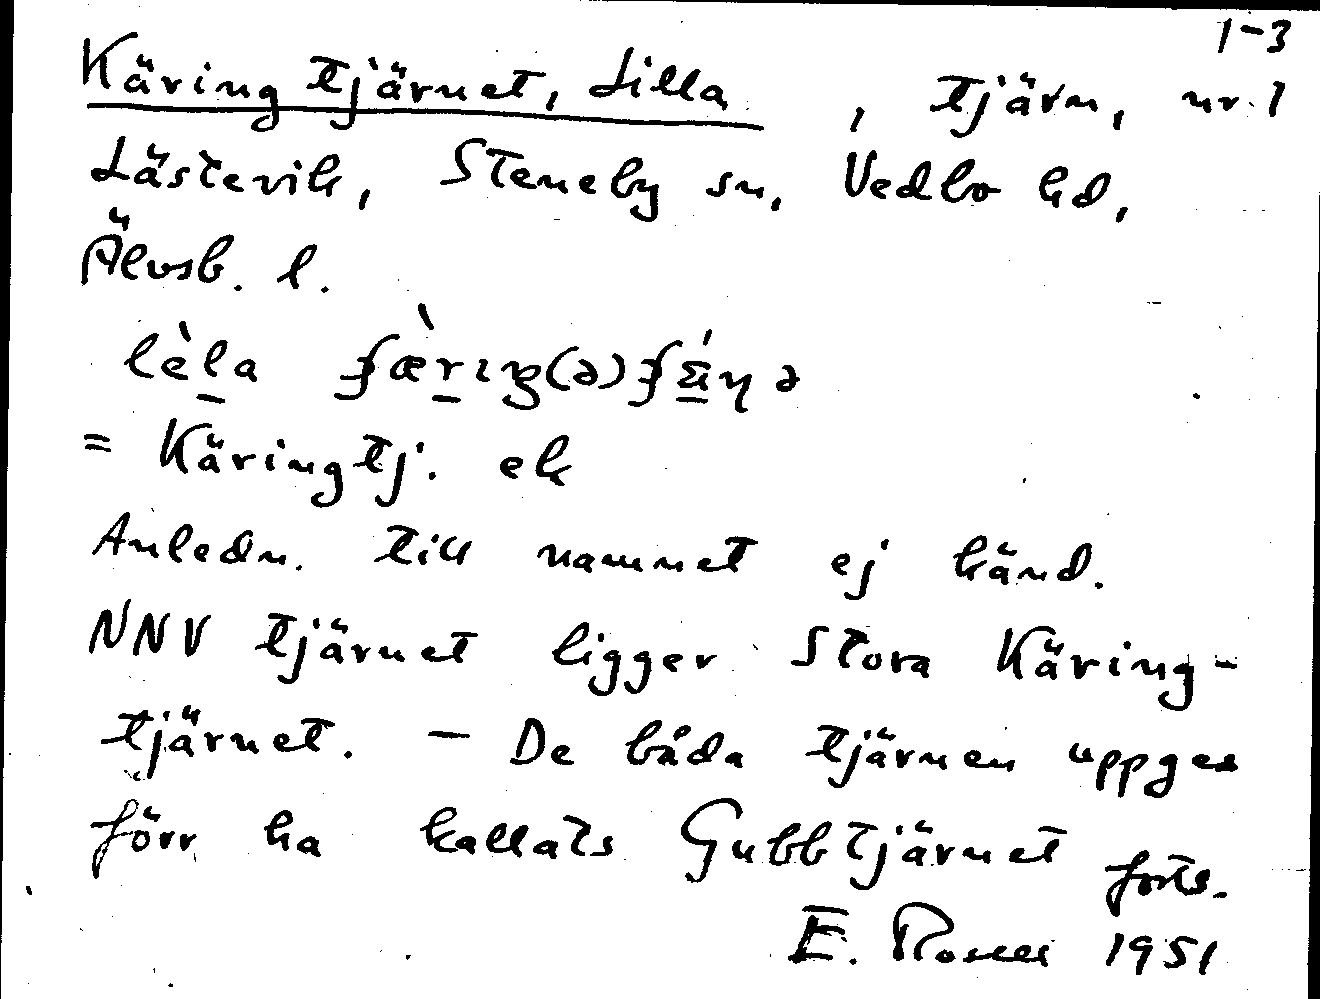 1-3
Käringtjärnet, Lilla, tjärn, nr 1
Lästevik, Steneby sn, Vedbo hd,
Älvsb. l.
lèla
= Käringtj. ek
Anledn. till namnet ej känd.
NNV tjärnet ligger Stora Käring-
tjärnet. - De båda tjärnen uppges
förr ha kallats Gubbtjärnet forts.
E. 1951